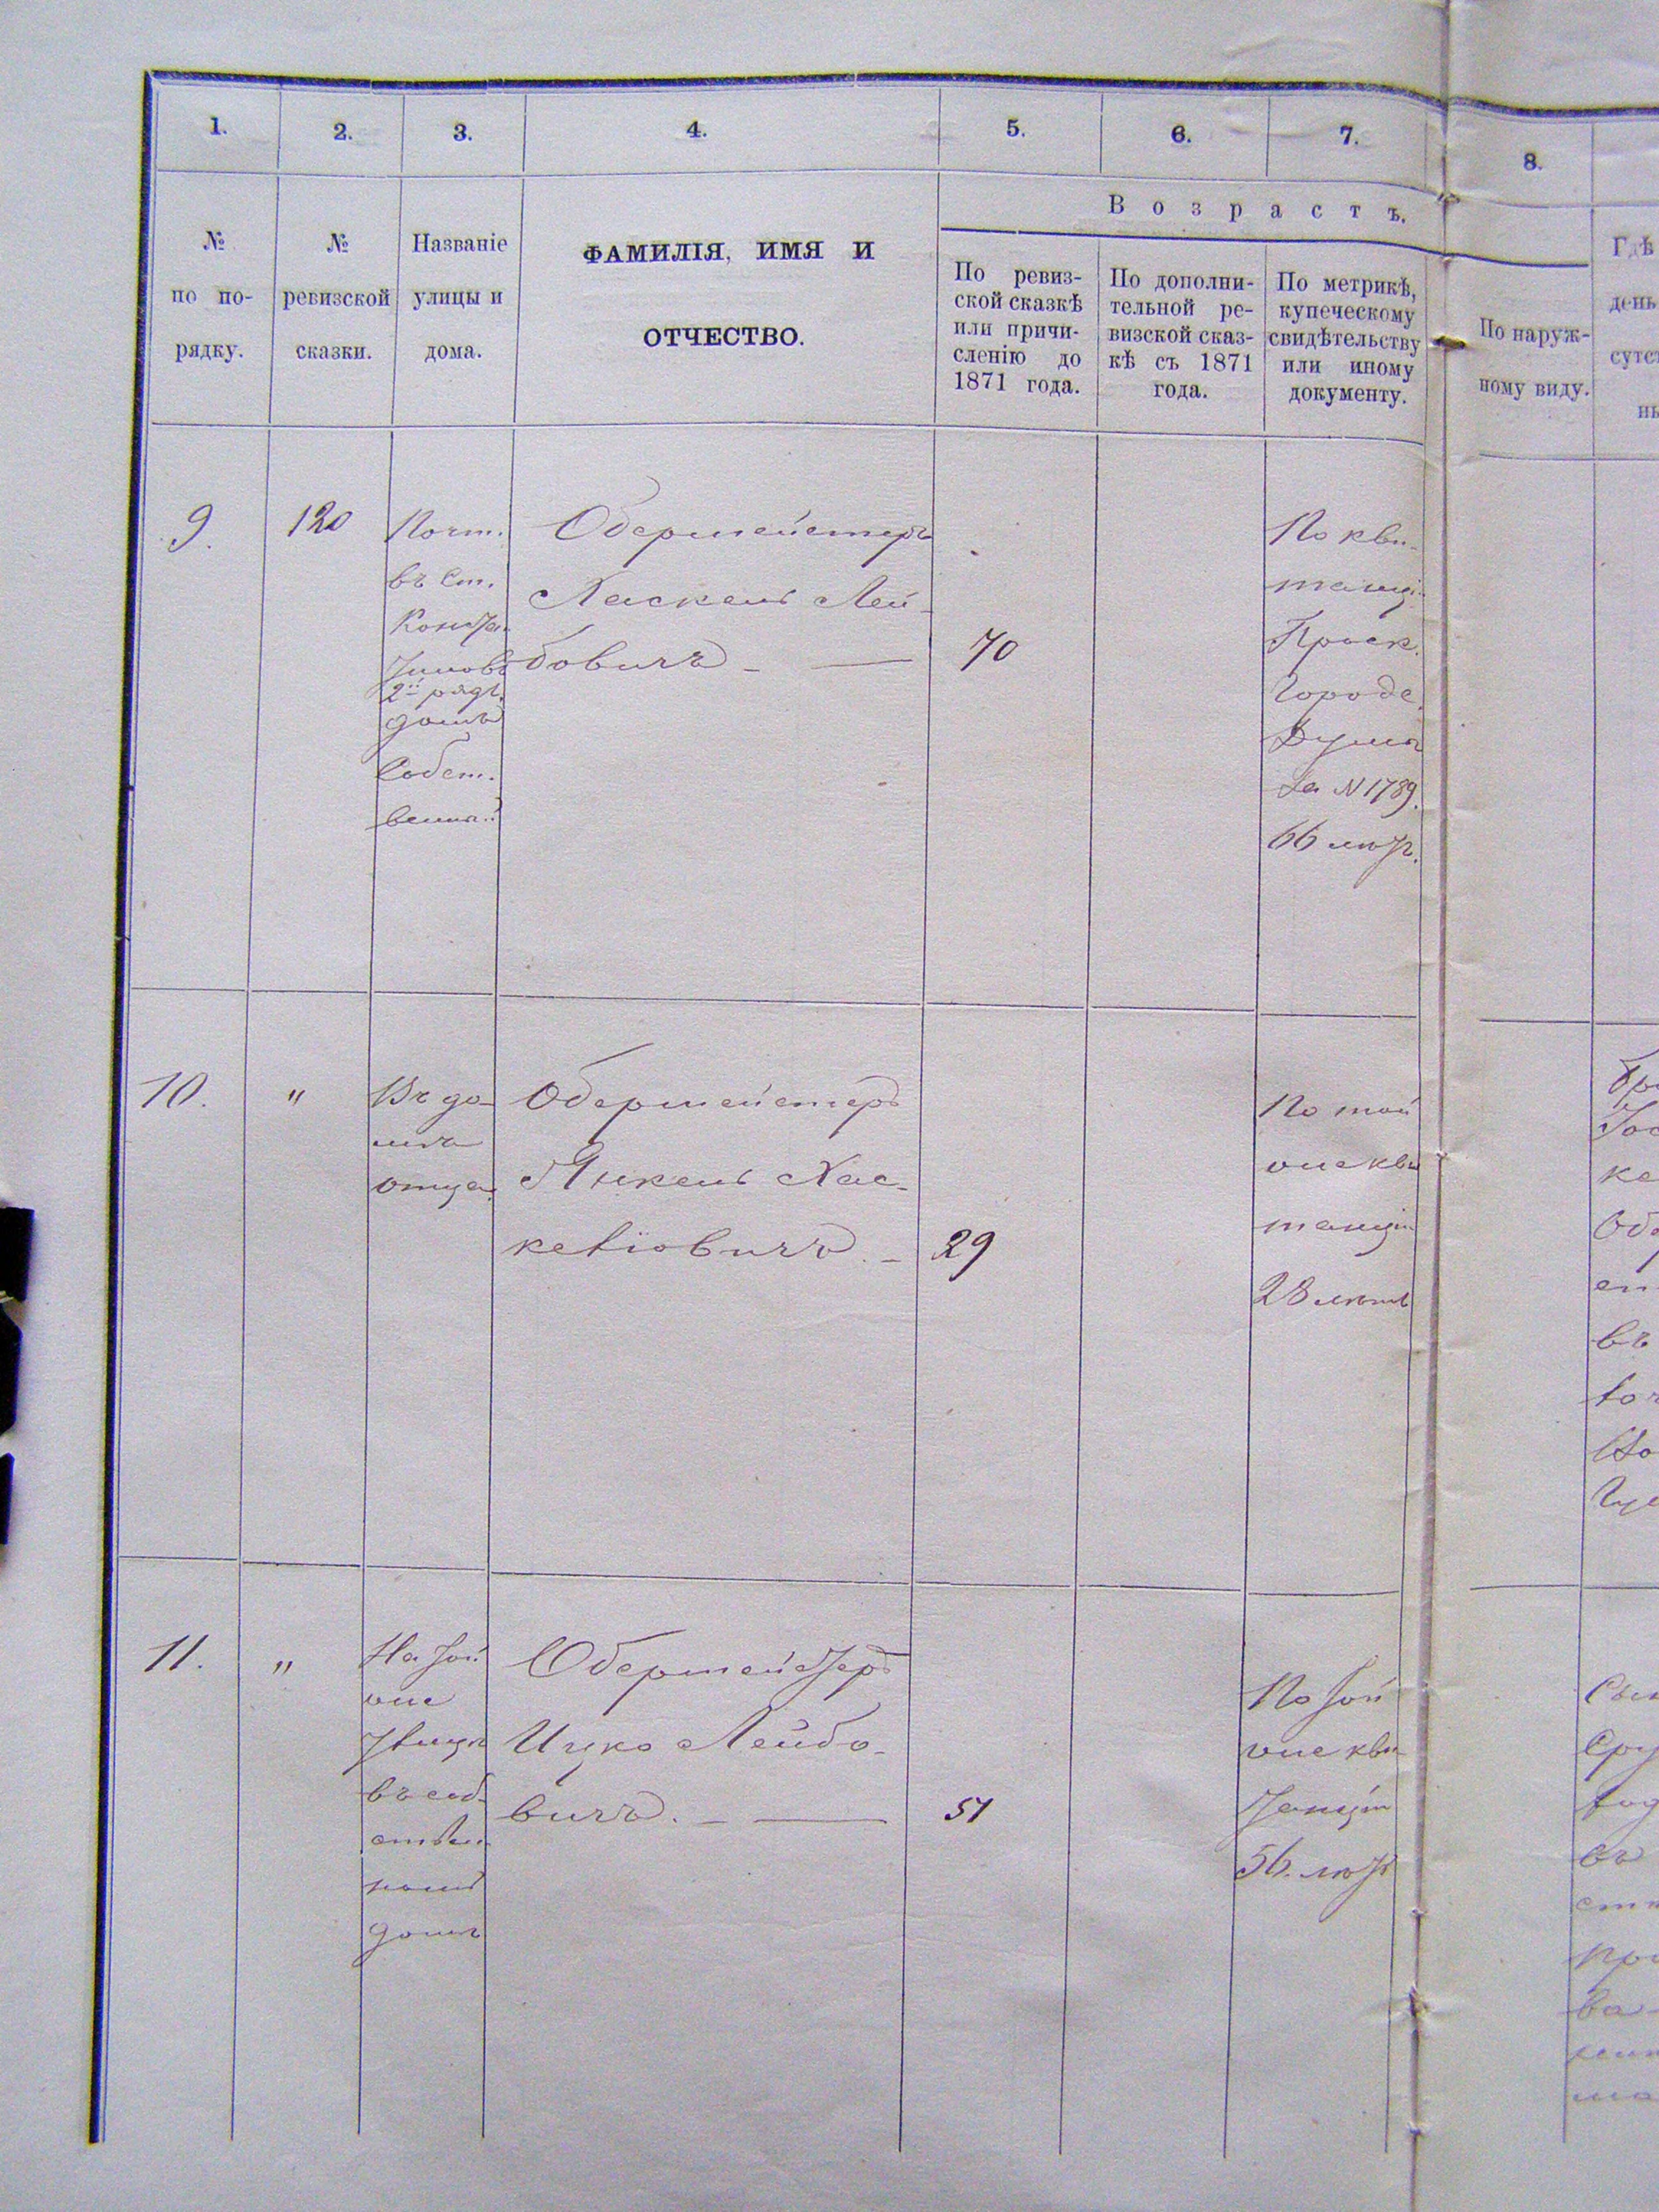 1.
2.
3.
4.
5.
6.
7.
8.
№
по по-
рядку.
№
ревизской
сказки.
Названіе
улицы и
дома.
ФАМИЛІЯ, ИМЯ И
ОТЧЕСТВО.
Возрастъ.
По ревиз-
ской сказкѣ
или причи-
сленію до
1871 года.
По дополни-
тельной ре-
визской сказ-
кѣ съ 1871
года.
По метрикѣ,
купеческому
свидѣтельству
или иному
документу.
По наруж-
ному виду.
Гдѣ
день
сутст
9.
120
Почт.
въ Ст.
2й ряд.
домъ
Собст-
венный
Обермейстеръ
Хаскель Лей-
бовичъ
70
По кви-
танціи
Проск.
Городс.
Думы
За №1789.
66 лѣтъ.
10.
"
Въ до-
мѣ
отца
Обермейстеръ
Янкель Хас-
келіовичъ
29
По той
же кви
танціи
28 лѣтъ
въ
11.
"
На той
же
улицѣ
въ соб-
ствен-
номъ
домѣ
Обермейстеръ
Ицко Лейбо-
вичъ.
51
По той
же кви-
танціи
56. лѣтъ